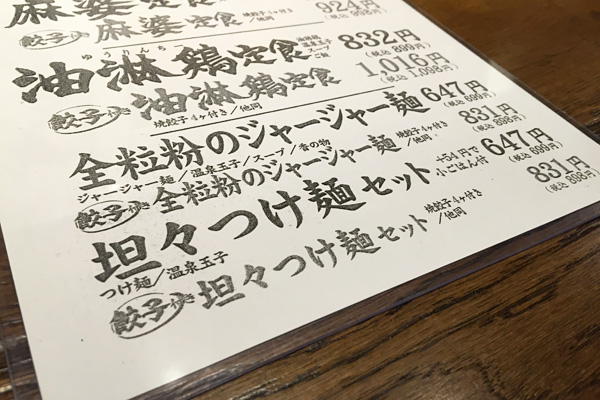 麻婆定食
924円
(税込 998円)
餃子付き 麻婆定食 焼餃子4ヶ付き/他同
ゆうりんちー
油淋鶏定食 油淋鶏 温泉玉子 スープ ご飯 832円
(税込 899円)
餃子付き 油淋鶏定食 1,016円
焼餃子4ヶ付き/他同 (税込 1,098円)
全粒粉のジャージャー麺 647円
ジャージャー麺/温泉玉子/スープ/香の物 (税込 699円)
餃子付き 全粒粉のジャージャー麺 焼餃子4ヶ付き/他同 831円
(税込 898円)
坦々つけ麺セット +54円で小ごはん付 647円
つけ麺/温泉玉子 (税込 699円)
餃子付き 坦々つけ麺セット 焼餃子4ヶ付き/他同 831円
(税込 898円)